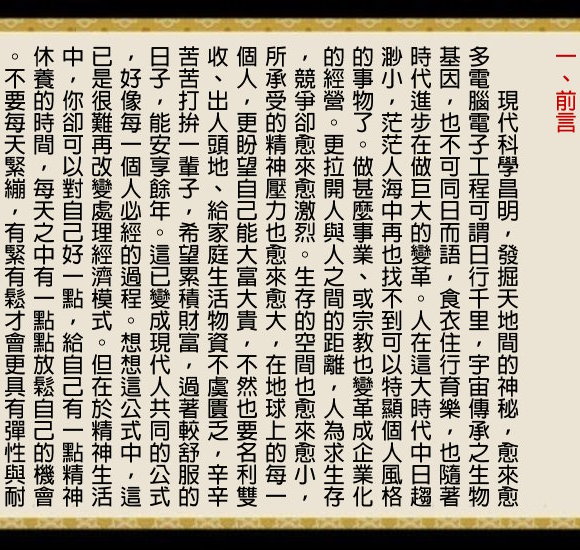 一、前言
現代科學昌明，發掘天地間的神秘，愈來愈
多電腦電子工程可謂日行千里，宇宙傳承之生物
基因，也不可同日而語，食衣住行育樂，也隨著
時代進步在做巨大的變革。人在這大時代中日趨
渺小，茫茫人海中再也找不到可以特顯個人風格
的事物了。做甚麼事業、或宗教也變革成企業化
的經營。更拉開人與人之間的距離，人為求生存
，競爭卻愈來愈激烈。生存的空間也愈來愈小，
所承受的精神壓力也愈來愈大，在地球上的每一
個人，更盼望自己能大富大貴，不然也要名利雙
收、出人頭地、給家庭生活物資不虞匱乏，辛辛
苦苦打拚一輩子，希望累積財富，過著較舒服的
日子，能安享餘年。這已變成現代人共同的公式
，好像每一個人必經的過程。想想這公式中，這
已是很難再改變處理經濟模式。但在於精神生活
中，你卻可以對自己好一點，給自己有一點精神
休養的時間，每天之中有一點點放鬆自己的機會
。不要每天緊繃，有緊有鬆才會更具有彈性與耐